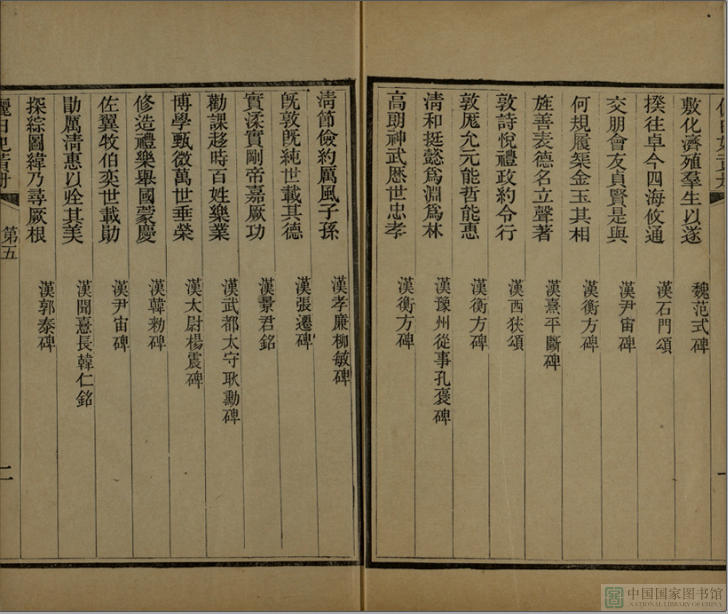 敷化濟殖羣生以遂 魏范式碑
揆往卓今四海攸通 漢石門頌
交朋會友貞賢是與 漢尹宙碑
何規履榘金玉其相 漢衡方碑
旌善表德名立聲著 漢熹平斷碑
敦詩悅禮政約令行 漢西狹頌
敦厖允元能哲能惠 漢衡方碑
清和挺懿爲淵爲林 漢豫州從事孔褒碑
高朗神武歷世忠孝
一
清節儉約厲風子孫 漢孝廉柳敏碑
旣敦旣純世載其德 漢張遷碑
實渘實剛帝嘉厥功 漢景君銘
勸課趍時百姓樂業 漢武都太守耿勳碑
博學甄微萬世垂榮 漢太尉楊震碑
修造禮樂舉國蒙慶 漢韓勑碑
佐翼牧伯奕世載勛 漢尹宙碑
勖厲清惠以㳙其美 漢聞憙長韓仁銘
探綜圖緯乃尋厥根 漢郭泰碑
第五
二
中国国家图书馆
NATIONAL LIBRARY OF CHINA